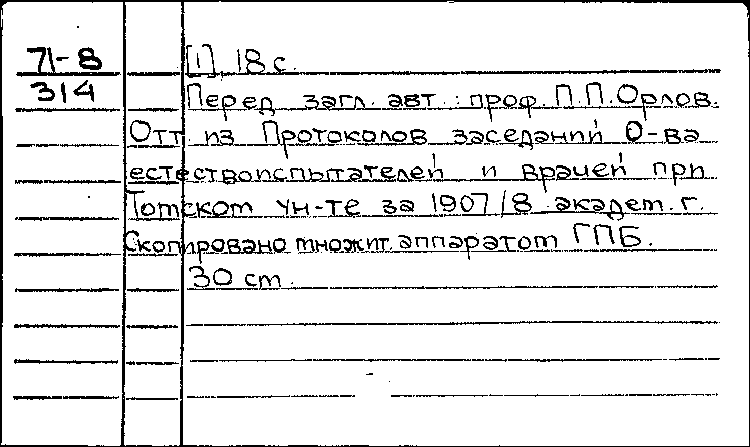 71-8 [1], 18 с.
314 Перед загл. авт.: проф. П.П. Орлов.
Отт. из Протоколов заседаний О-ва
естествоиспытателей и врачей при
Томском ун-те за 1907/8 академ. г.
Скопировано множит. аппаратом ГПБ.
30 см.